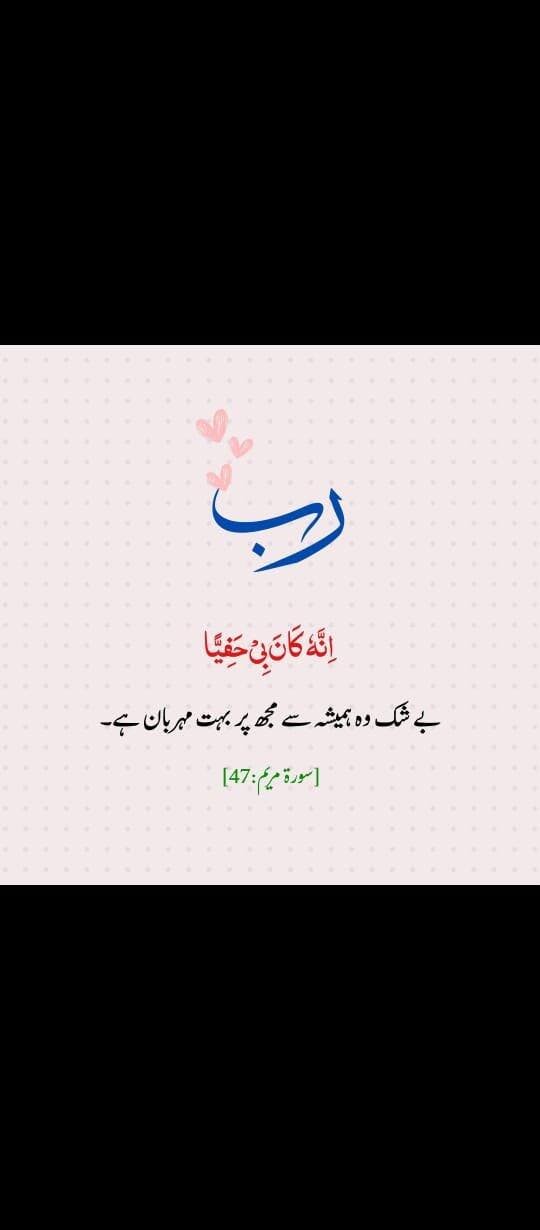 رب
اِنَّهٗ كَانَ بِیْ حَفِیًّا
بے شک وہ ہمیشہ سے مجھ پر بہت مہربان ہے۔
[سورۃ مریم:47]